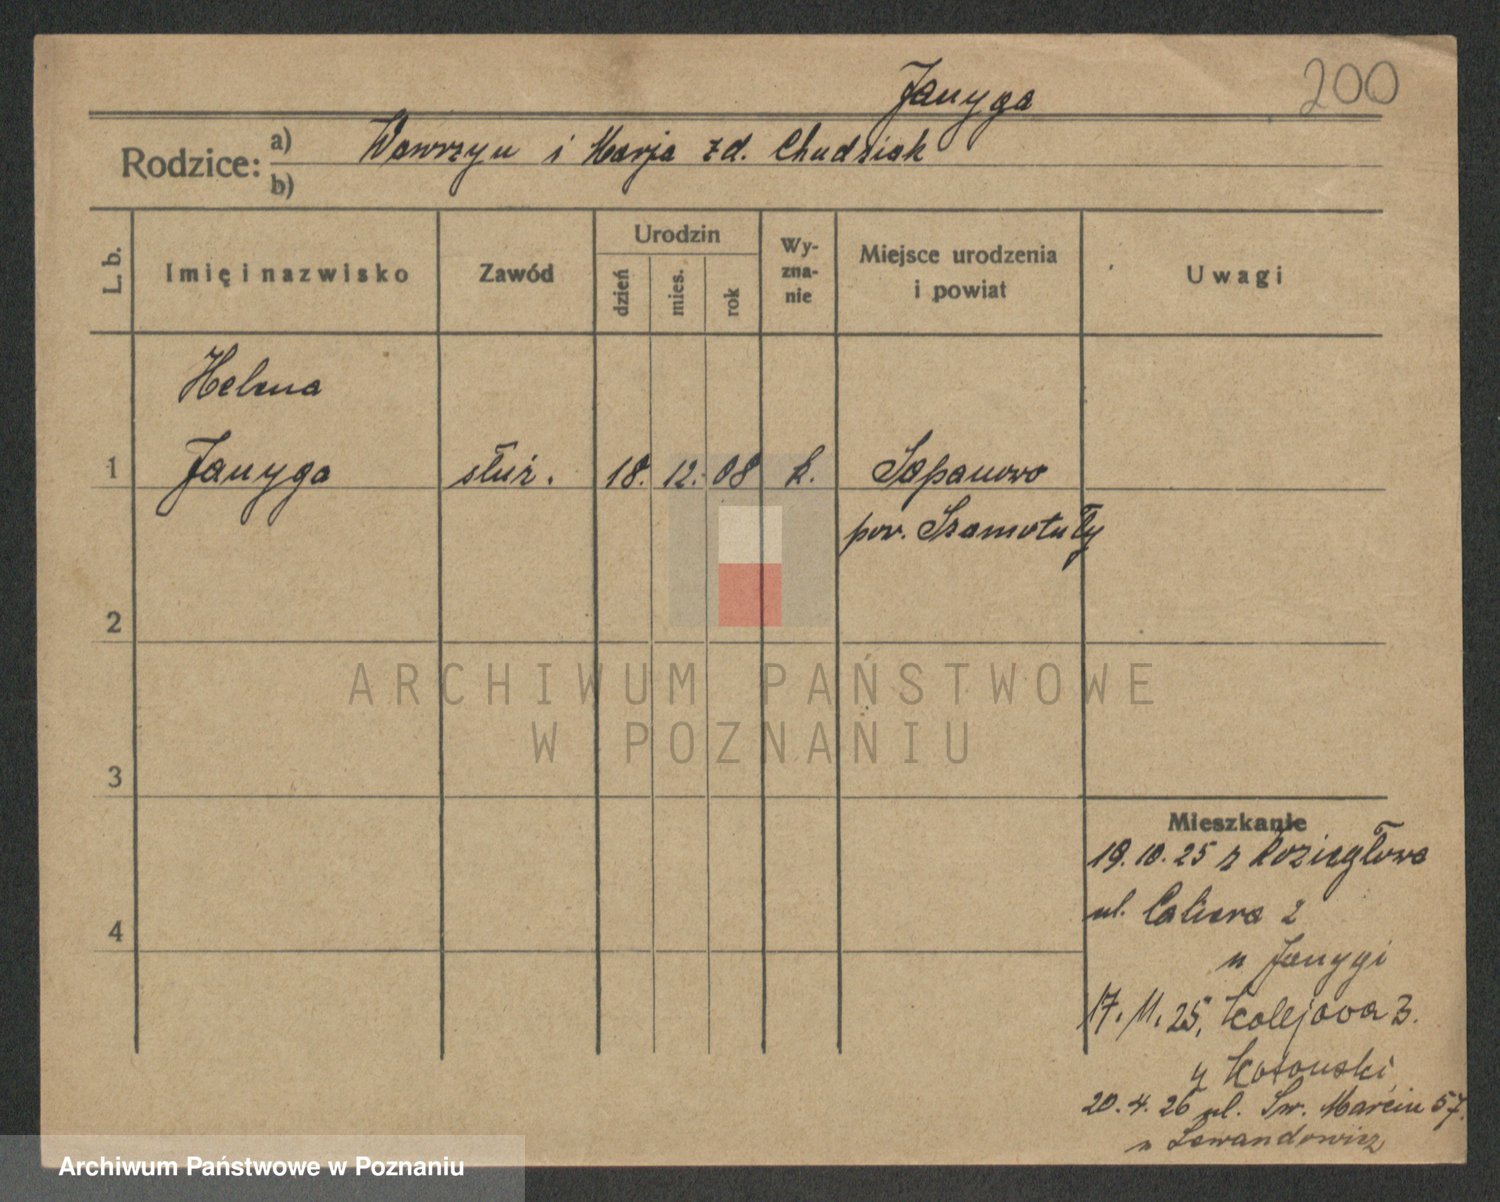 200
Janyga
Rodzice:
a) Wawrzyn i Marja zd. Chudziak
b)
L. b.
Imię i nazwisko
Zawód
Urodzin
dzień
mies.
rok
Wy-
zna-
nie
Miejsce urodzenia
i powiat
Uwagi
Helena
1 Janyga służ. 18. 12. 08 k. Sapanowo
pow. Szamotuły
2
3
4
ARCHIWUM PAŃSTWOWE
W POZNANIU
Mieszkanie
19.10.25 z Koziegłowa
ul. Caliera 2
u Janygi
17.11.25, Kolejowa 3.
u
20.4.26 ul. Św. Marcin 57.
u Lewandowicz
Archiwum Państwowe w Poznaniu